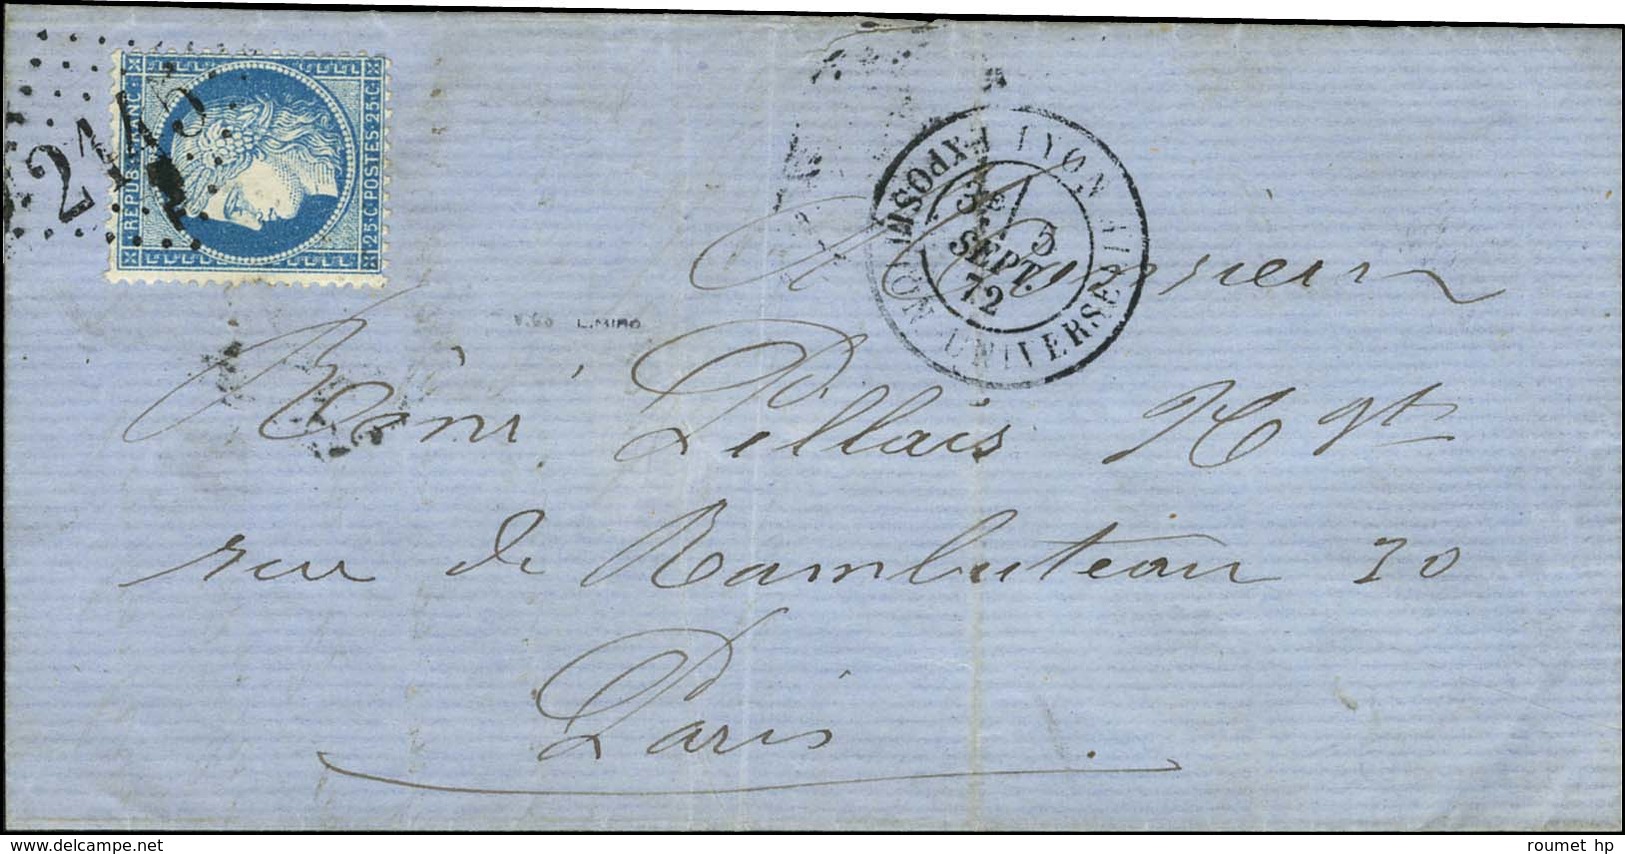 REPUB FRANC
25 C POSTES 25 C
2145
LYON
EXPOSITION UNIVERSELLE
3E
5
SEPT.
72
Monsieur
René Pillais Ngt
rue de Rambuteau 20
Paris
www.delcampe.net
roumet hp